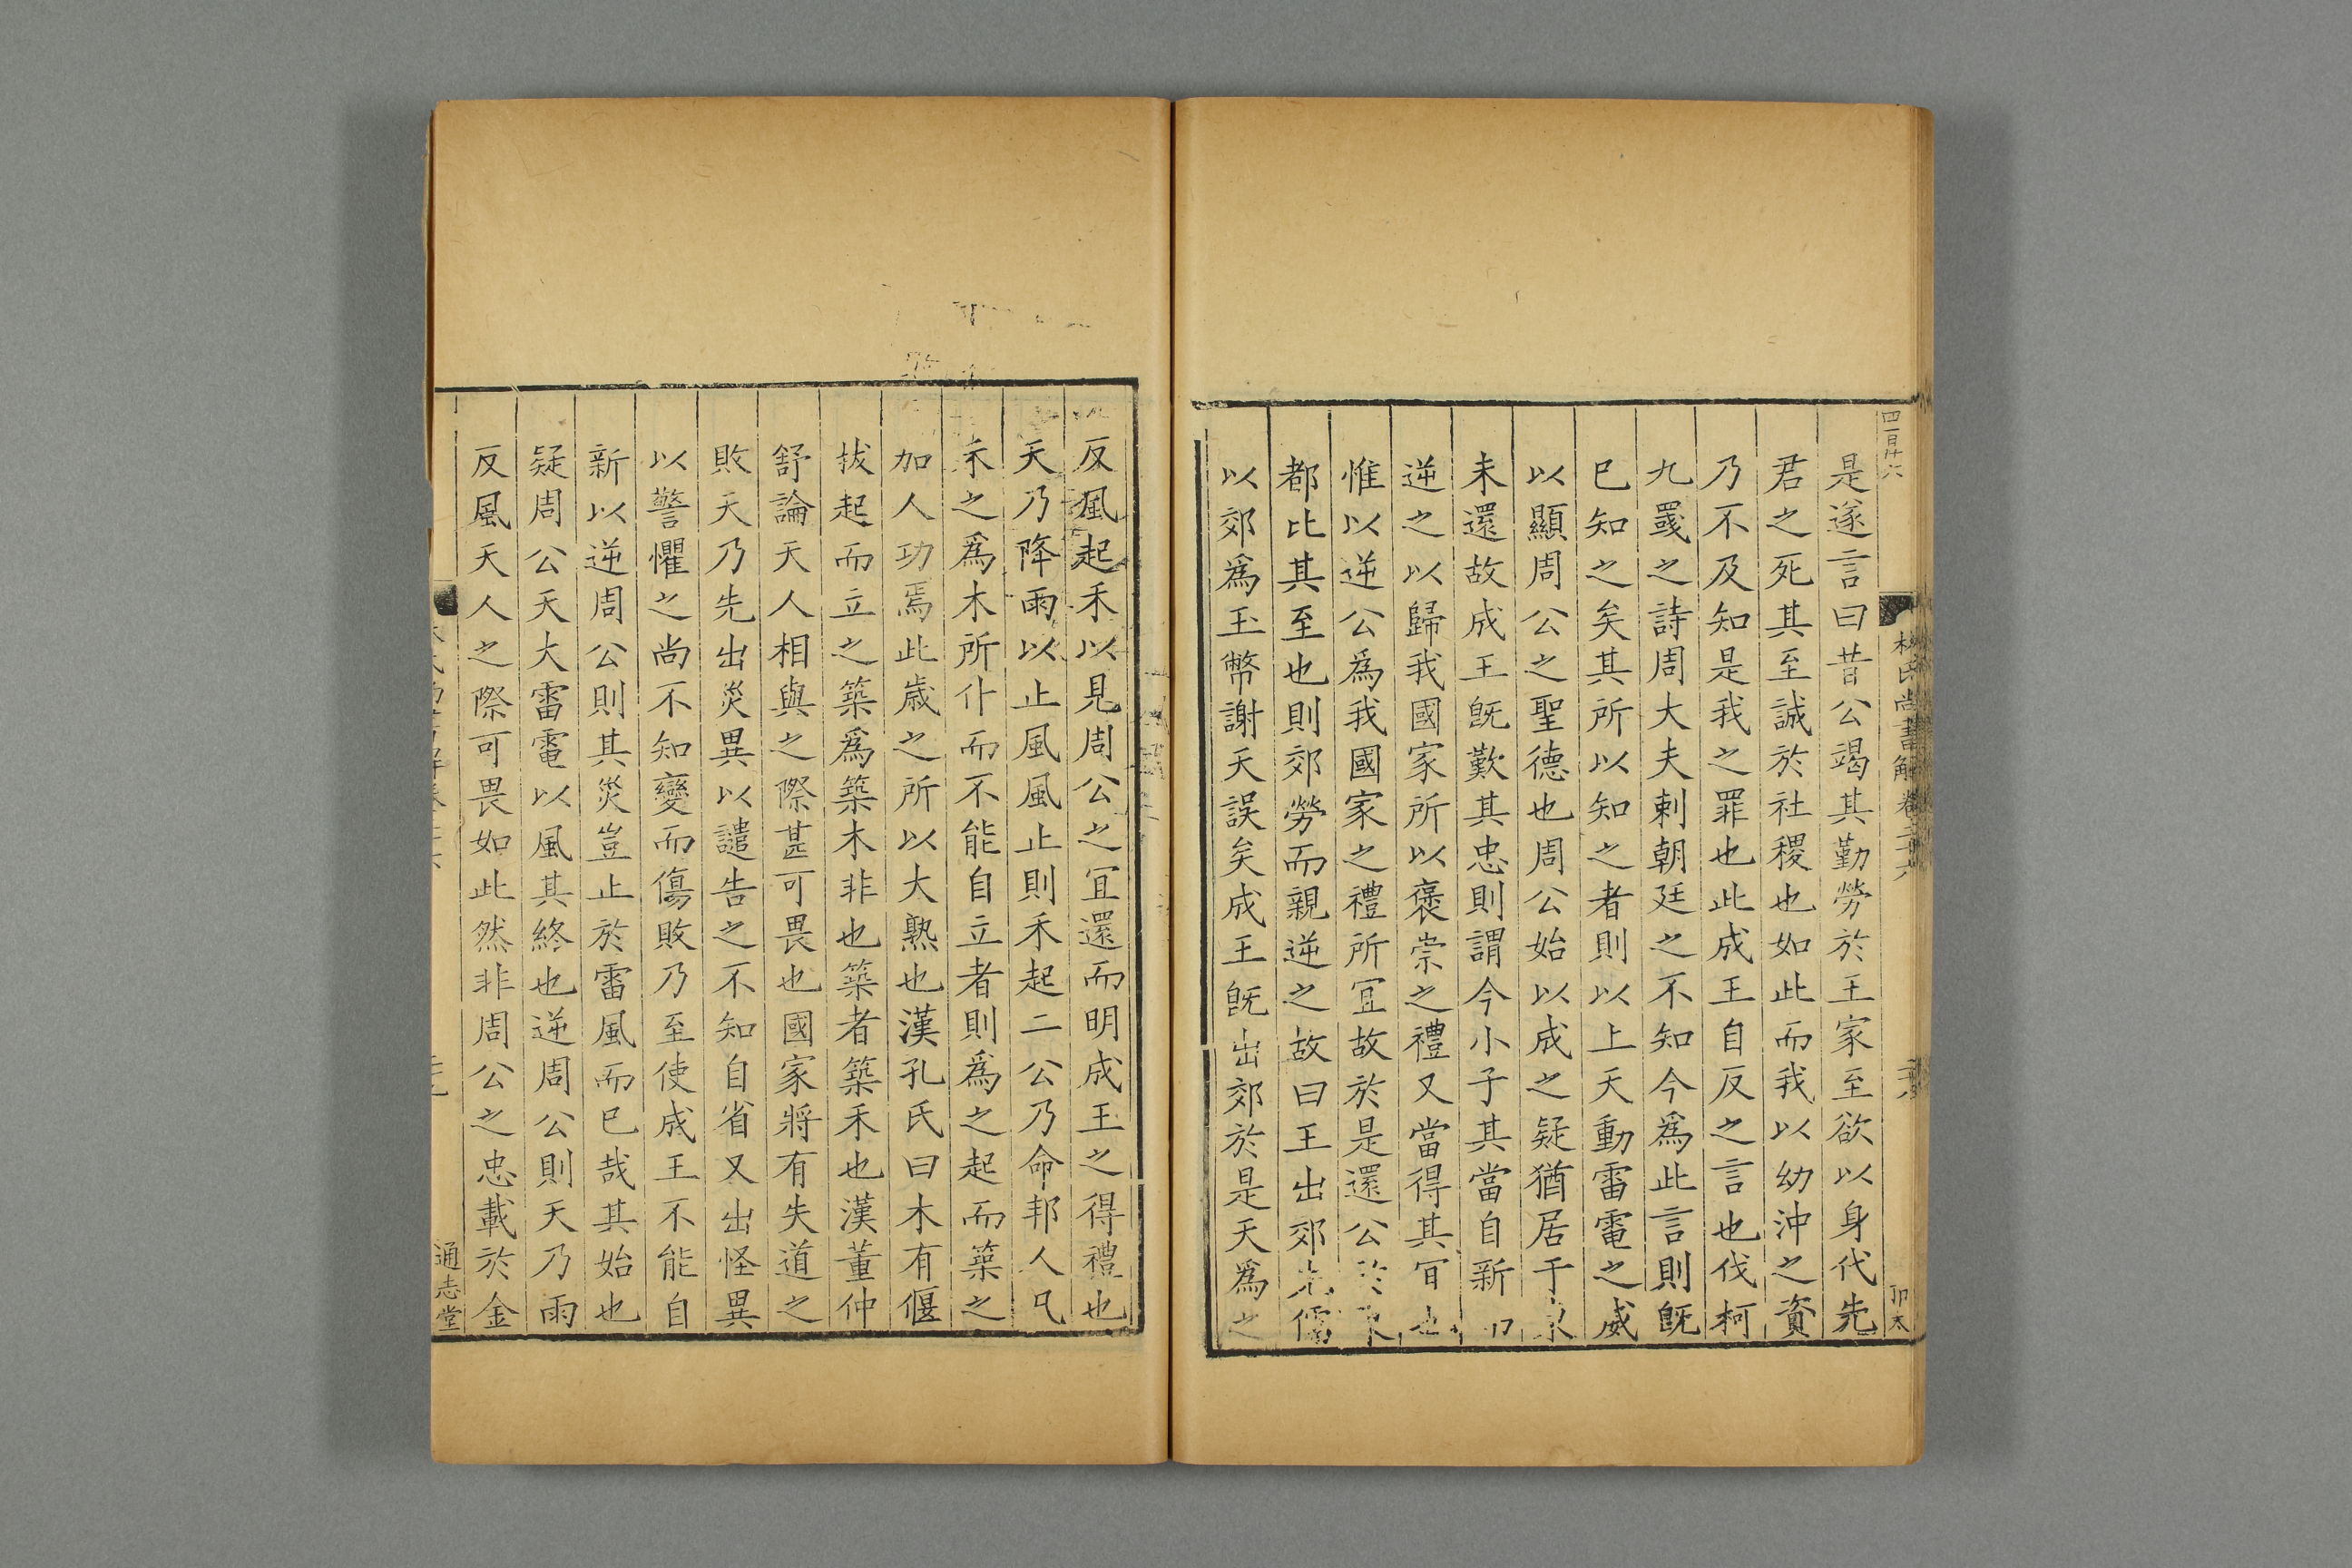 四百廿六
林氏尚書解卷二十六
卯太
是遂言曰昔公竭其勤勞於王家至欲以身代先
君之死其至誠於社稷也如此而我以幼沖之資
乃不及知是我之罪也此成王自反之言也伐柯
九罭之詩周大夫刺朝廷之不知今爲此言則旣
已知之矣其所以知之者則以上天動雷電之威
以顯周公之聖德也周公始以成之疑猶居于
未還故成王旣歎其忠則謂今小子其當自新
逆之以歸我國家所以褒崇之禮又當得其宜也
惟以逆公爲我國家之禮所宜故於是還公於
都比其至也則郊勞而親逆之故曰王出郊先儒
以郊爲玉幣謝天誤矣成王旣出郊於是天爲之
反風起禾以見周公之宜還而明成王之得禮也
天乃降雨以止風風止則禾起二公乃命邦人凡
禾之爲木所仆而不能自立者則爲之起而築之
加人功焉此歲之所以大熟也漢孔氏曰木有偃
拔起而立之築爲築木非也築者築禾也漢董仲
舒論天人相與之際甚可畏也國家將有失道之
敗天乃先出災異以譴告之不知自省又出怪異
以警懼之尚不知變而傷敗乃至使成王不能自
新以逆周公則其災豈止於雷風而已哉其始也
疑周公天大雷電以風其終也逆周公則天乃雨
反風天人之際可畏如此然非周公之忠載於金
通志堂